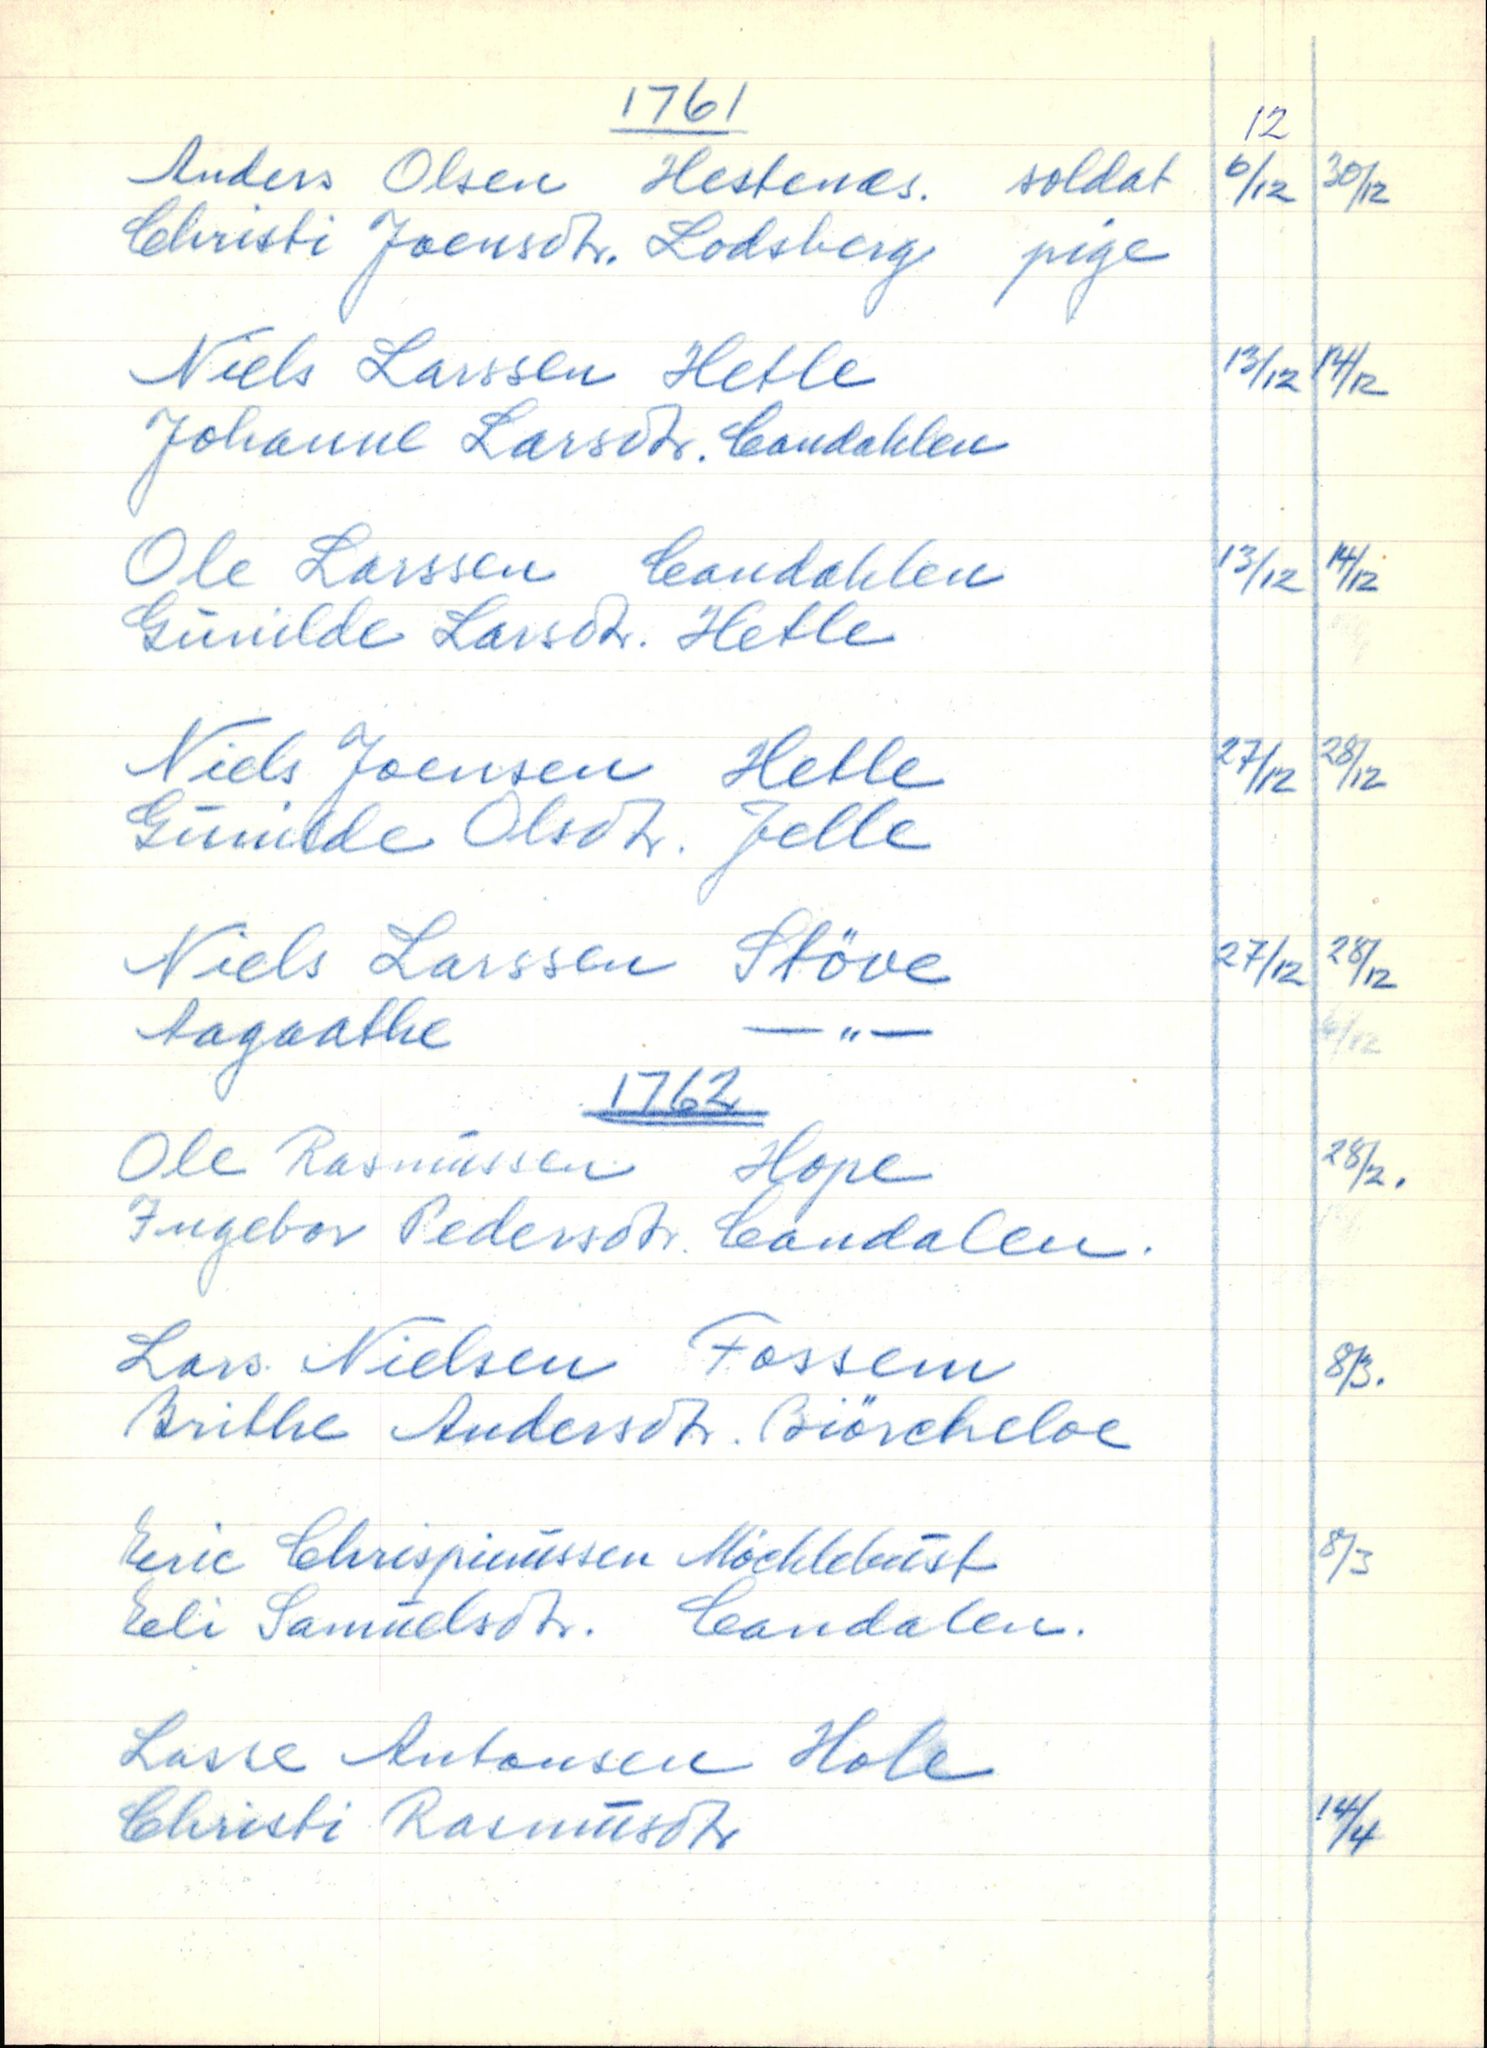 1761
12
Anders Olsen Hestenes. soldat 6/12 30/12
Christi Joensdtr. Lodsberg pige
Niels Larssen Hetle 13/12 14/12
Johanne Larsdtr. Candahlen
Ole Larssen Candahlen 13/12 14/12
Gŭnilde Larsdtr. Hetle
Niels Joensen Hetle 27/12 28/12
Gŭnilde Olsdtr. Felle
Niels Larssen Stöve 27/12 28/12
Aagaathe — " —
1762
Ole Rasmŭssen Hope 28/2.
Ingebor Pedersdtr. Candalen.
Lars Nielsen Fossem 8/3.
Brithe Andersdtr. Biörcheloe
Eric Chrispinŭssen Möchlebŭst 8/3
Eeli Samŭelsdtr. Candalen.
Lasse Antonsen Hole
Christi Rasmŭsdtr 14/4